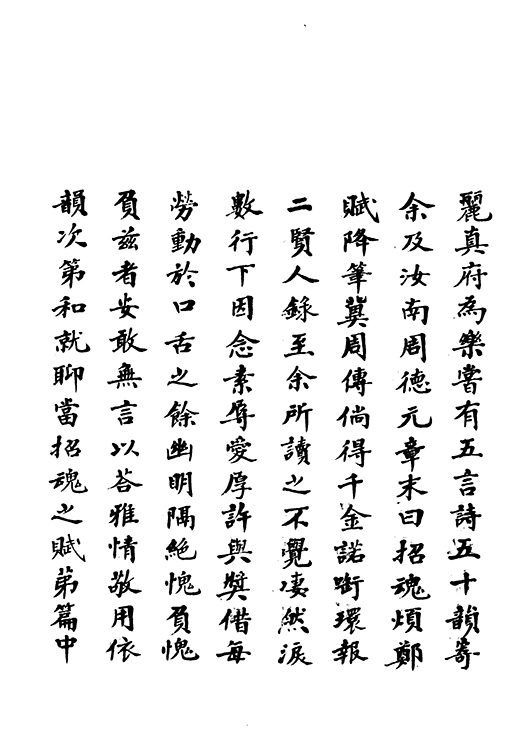 麗真府為樂嘗有五言詩五十韻寄
余及汝南周德元章末曰招魂煩鄭
賦降筆冀周傳倘得千金諾銜環報
二賢人錄至余所讀之不覺凄然淚
數行下因念素辱愛厚許與獎借每
勞動於口舌之餘幽明隔絶愧負愧
負茲者安敢無言以荅雅情敬用依
韻次第和就聊當招魂之賦苐篇中